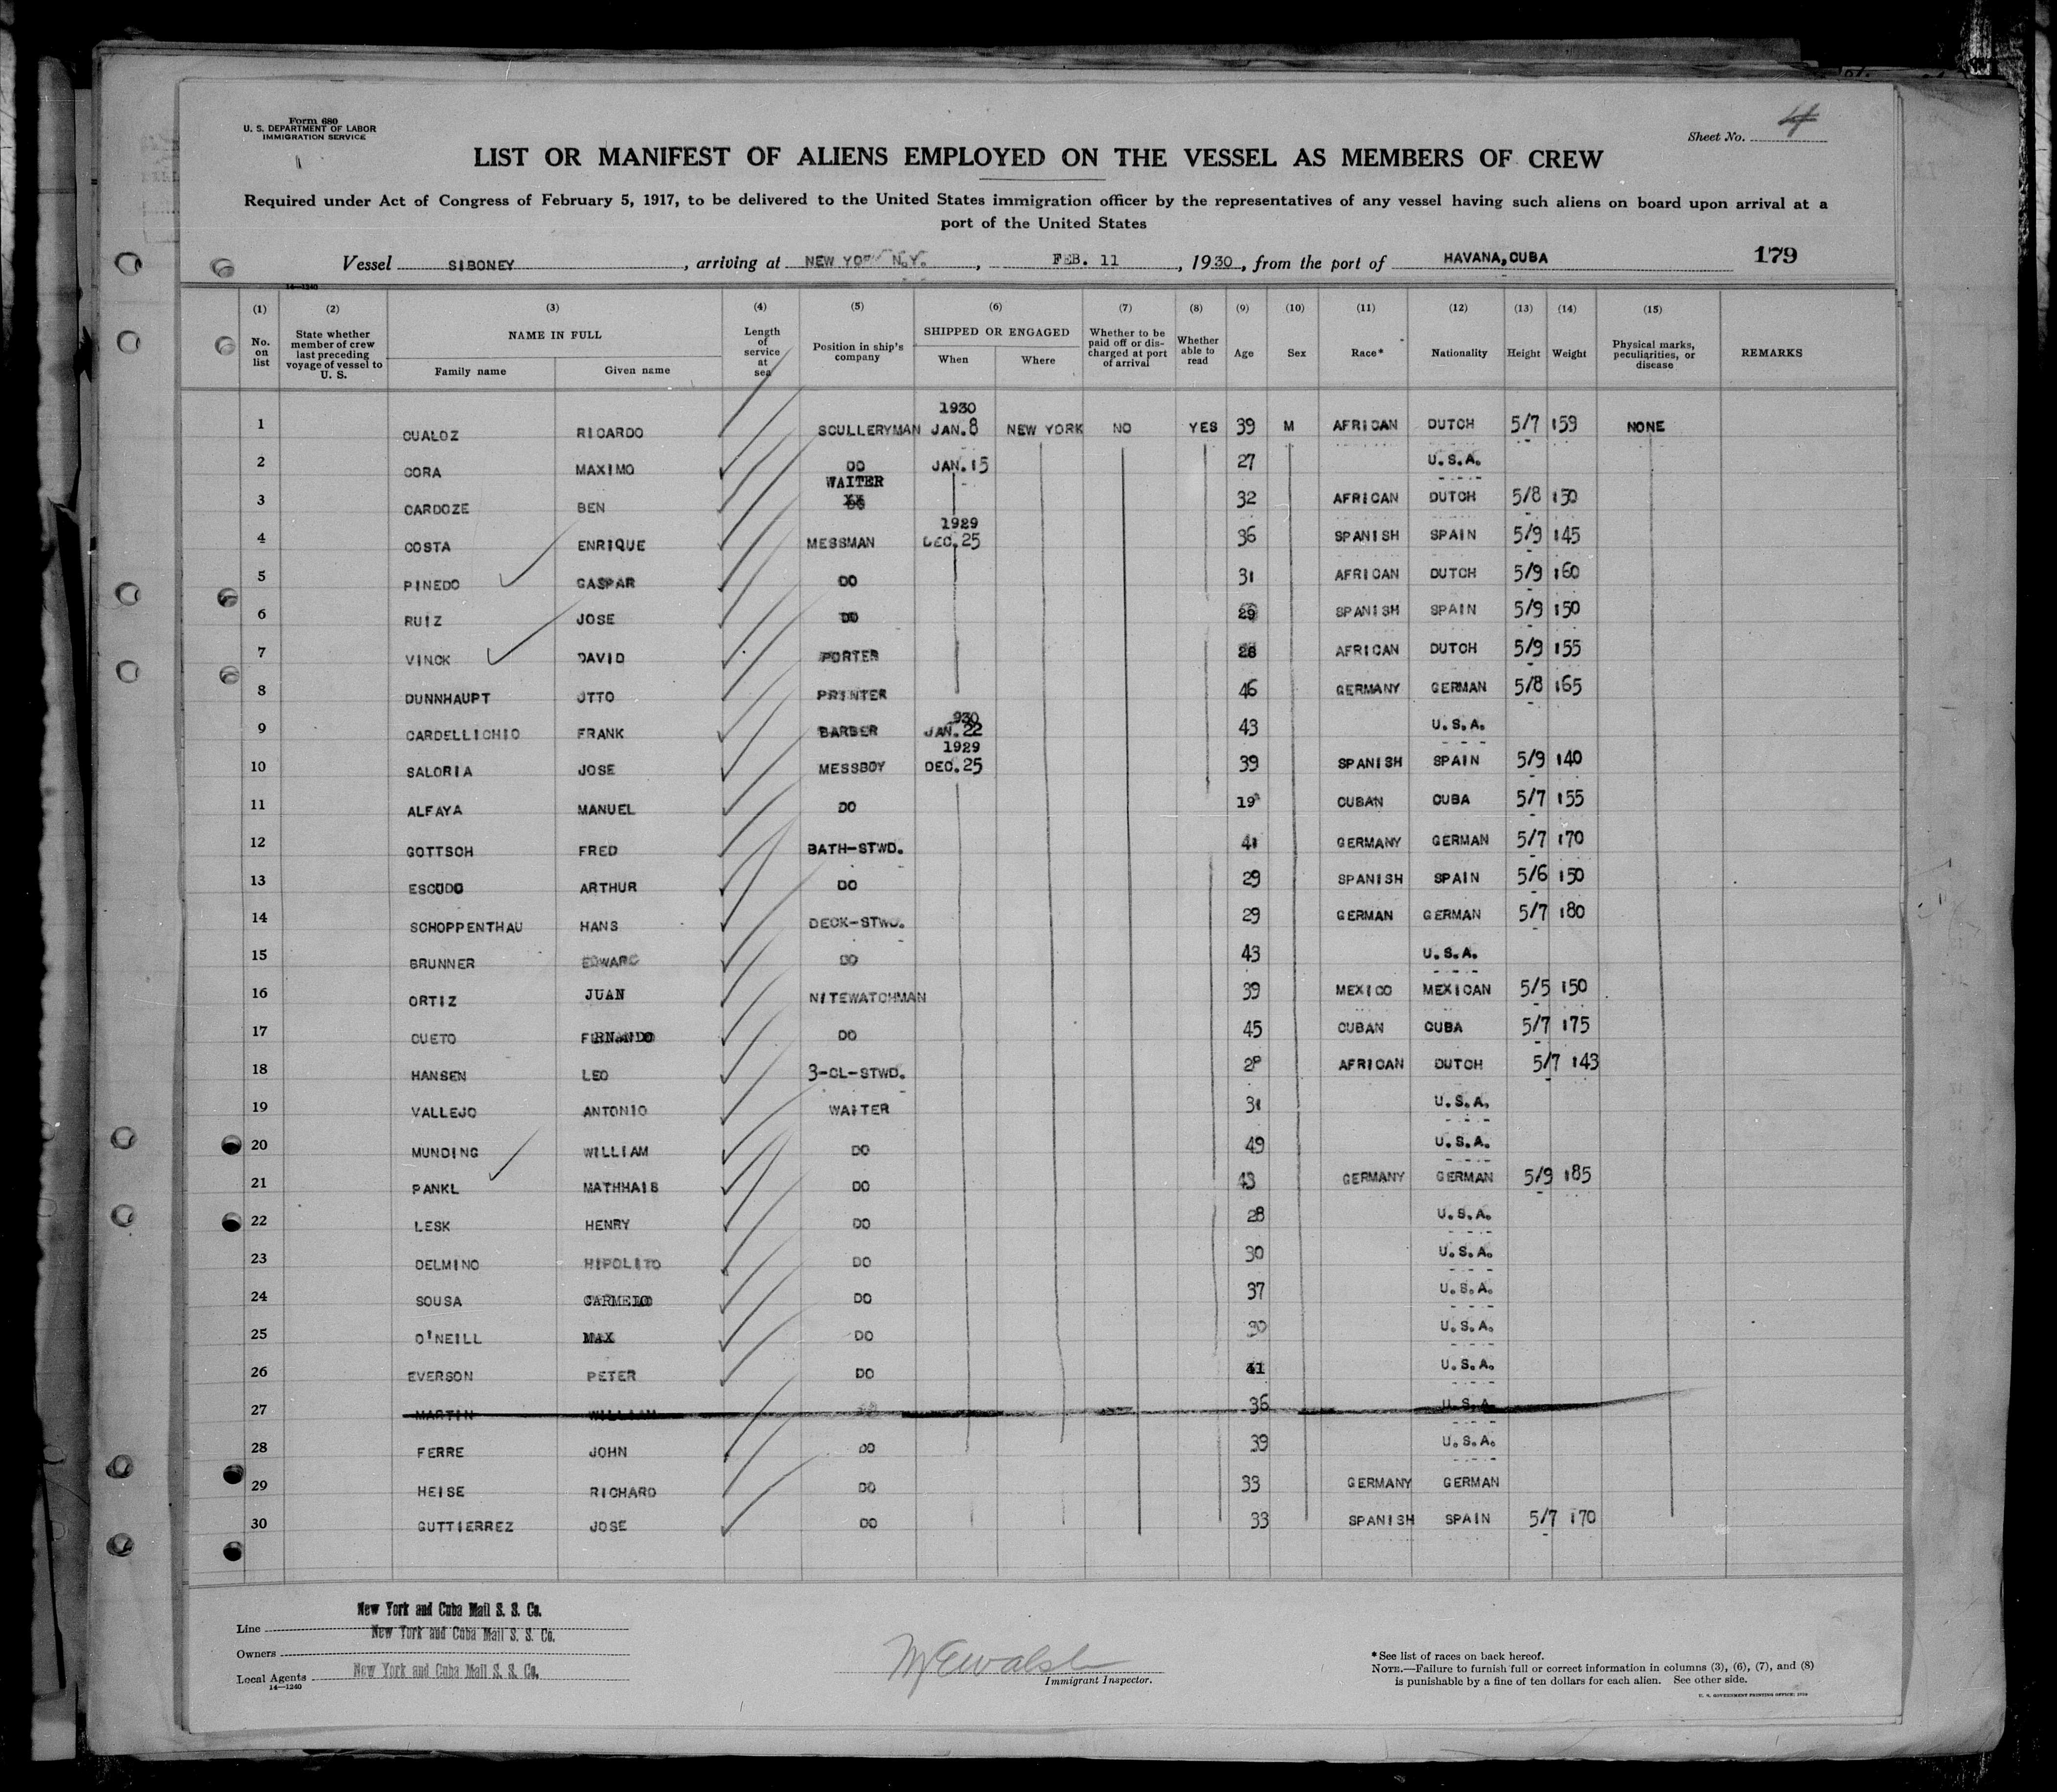 Form 680
U. S. DEPARTMENT OF LABOR
IMMIGRATION SERVICE
Sheet No. 4
LIST OR MANIFEST OF ALIENS EMPLOYED ON THE VESSEL AS MEMBERS OF CREW
Required under Act of Congress of February 5, 1917, to be delivered to the United States immigration officer by the representatives of any vessel having such aliens on board upon arrival at a
port of the United States
Vessel SIBONEY, arriving at NEW YORK N.Y., FEB. 11, 1930, from the port of HAVANA, CUBA 179
14—1240
(1) (2) (3) (4) (5) (6) (7) (8) (9) (10) (11) (12) (13) (14) (15)
No. on list State whether member of crew last preceding voyage of vessel to U. S. NAME IN FULL Family name Given name Length of service at sea Position in ship's company SHIPPED OR ENGAGED When Where Whether to be paid off or discharged at port of arrival Whether able to read Age Sex Race* Nationality Height Weight Physical marks, peculiarities, or disease REMARKS
1930
1 CUALOZ RICARDO SCULLERYMAN JAN. 8 NEW YORK NO YES 39 M AFRICAN DUTCH 5/7 159 NONE
2 CORA MAXIMO DO JAN. 15 27 U.S.A.
WAITER
3 CARDOZE BEN 32 AFRICAN DUTCH 5/8 150
1929
4 COSTA ENRIQUE MESSMAN DEC. 25 36 SPANISH SPAIN 5/9 145
5 PINEDO GASPAR DO 31 AFRICAN DUTCH 5/9 160
6 RUIZ JOSE DO 29 SPANISH SPAIN 5/9 150
7 VINCK DAVID PORTER 28 AFRICAN DUTCH 5/9 155
8 DUNNHAUPT OTTO PRINTER 46 GERMANY GERMAN 5/8 165
930
9 CARDELLICHIO FRANK BARBER JAN. 22 43 U.S.A.
1929
10 SALORIA JOSE MESSBOY DEC. 25 39 SPANISH SPAIN 5/9 140
11 ALFAYA MANUEL DO 19 CUBAN CUBA 5/7 155
12 GOTTSCH FRED BATH-STWD. 41 GERMANY GERMAN 5/7 170
13 ESCUDO ARTHUR DO 29 SPANISH SPAIN 5/6 150
14 SCHOPPENTHAU HANS DECK-STWD. 29 GERMAN GERMAN 5/7 180
15 BRUNNER EDWARD DO 43 U.S.A.
16 ORTIZ JUAN NITEWATCHMAN 39 MEXICO MEXICAN 5/5 150
17 CUETO FERNANDO DO 45 CUBAN CUBA 5/7 175
18 HANSEN LEO 3-CL-STWD. AFRICAN DUTCH 5/7 143
19 VALLEJO ANTONIO WAITER 31 U.S.A.
20 MUNDING WILLIAM DO 49 U.S.A.
21 PANKL MATHHAIS DO 43 GERMANY GERMAN 5/9 185
22 LESK HENRY DO 28 U.S.A.
23 DELMINO HIPOLITO DO 30 U.S.A.
24 SOUSA CARMELO DO 37 U.S.A.
25 O'NEILL MAX DO 30 U.S.A.
26 EVERSON PETER DO 41 U.S.A.
27 MARTIN WILLIAM 36 U.S.A.
28 FERRE JOHN DO 39 U.S.A.
29 HEISE RICHARD DO 33 GERMANY GERMAN
30 GUTTIERREZ JOSE DO 33 SPANISH SPAIN 5/7 170
Line New York and Cuba Mail S. S. Co.
Owners New York and Cuba Mail S. S. Co.
Local Agents New York and Cuba Mail S. S. Co.
14—1240
Immigrant Inspector.
*See list of races on back hereof.
NOTE.—Failure to furnish full or correct information in columns (3), (6), (7), and (8)
is punishable by a fine of ten dollars for each alien. See other side.